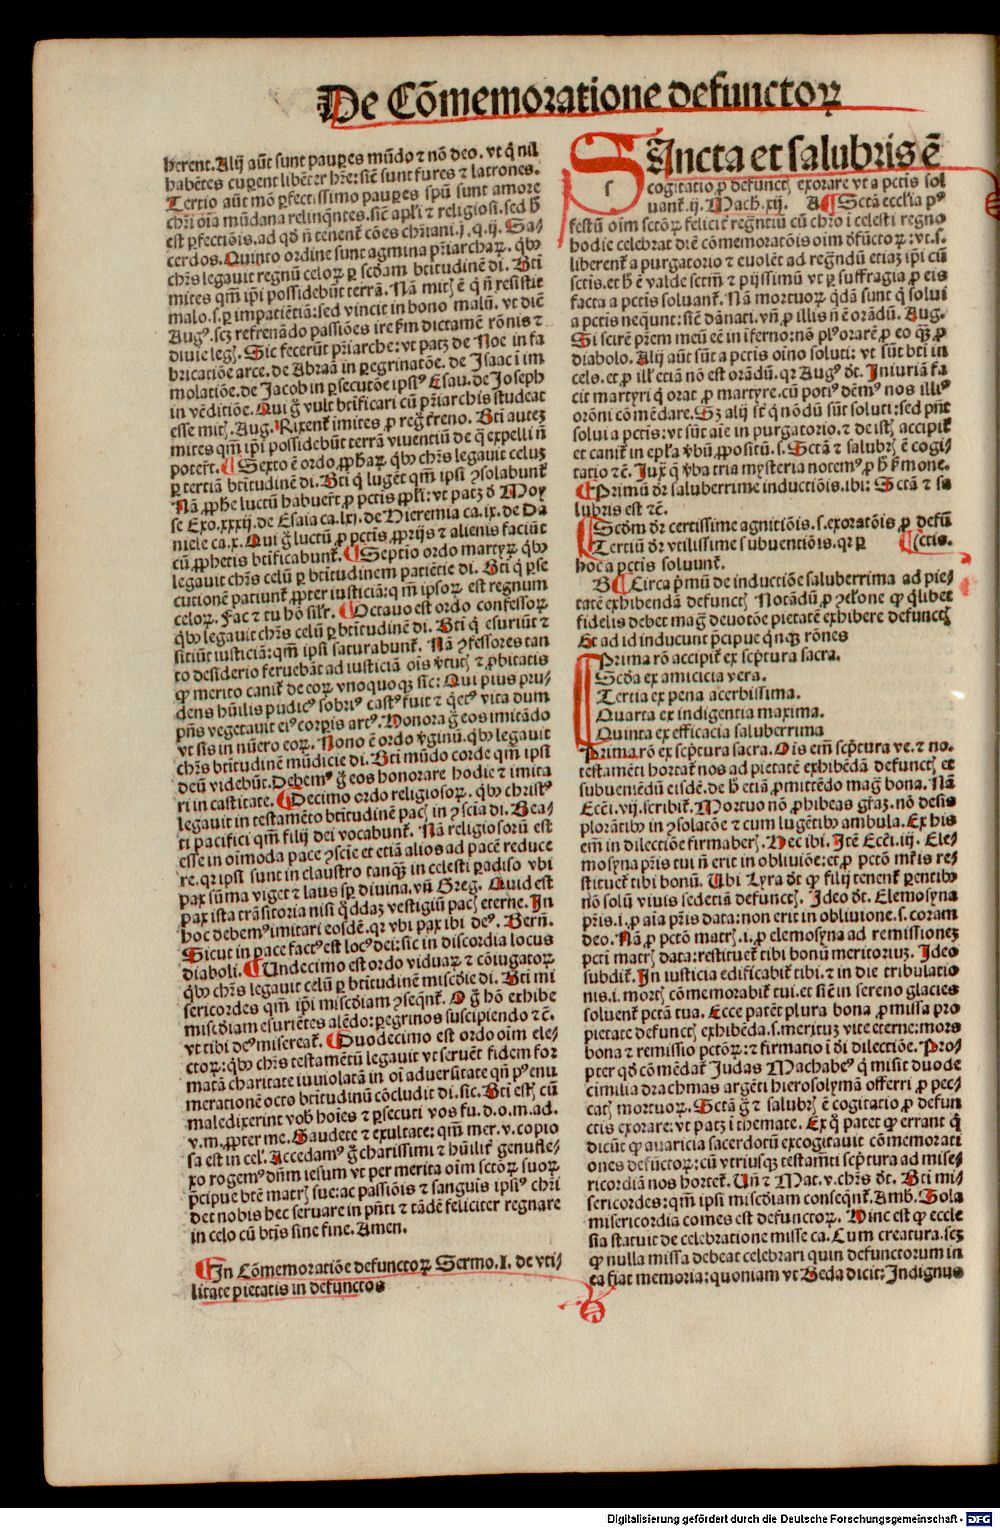 De Cõmemoratione defunctoꝝ
herent. Alij aũt sunt pauꝑes mũdo ⁊ nõ deo. vt q̃ nil
habẽtes cuꝑent libẽter hr̃e: sic̃ sunt fures ⁊ latrones.
Tertio aũt mõ ꝑfectissimo pauꝑes spũ sunt amore
chr̃i oĩa mũdana relinq̃ntes. sic̃ apl̃i ⁊ religiosi. sed h̃
est ꝑfectiõis. ad qḋ nõ tenent᷑ cões chr̃iani. j. q. ij. Sa-
cerdos. Quinto ordine sunt agmina pr̃iarchaꝝ. q̃bꝰ
chr̃s legauit regnũ celoꝝ ꝑ scḋam btĩtudinẽ di. Bti
mites qm̃ ip̃i possidebũt terrã. Nã mit ẽ q̃ nõ resistit
malo. s. ꝑ impatiẽtiã: sed vincit in bono malũ. vt diẽ
Augꝰ. scꝫ refrenãdo passiões ire ẜm dictamẽ rõnis ⁊
diuie leg. Sic fecerũt pr̃iarche: vt patꝫ de Noe in fa
bricatiõe arce. de Abraã in ꝑegrinatõe. de Isaac ĩ im
molatiõe. de Jacob in ꝑsecutõe ipsiꝰ Esau. de Joseph
in vẽditiõe. Qui g̃ vult btĩficari cũ pr̃iarchis studeat
esse mit. Aug. Rixent᷑ imites ꝓ reg terreno. Bti auteꝫ
mites qm̃ ip̃i possidebũt terrã viuentiũ de q̃ expelli nõ
poter̃t. ¶ Sexto ẽ ordo ꝓphaꝝ. q̃bꝰ chr̃s legauit celuꝫ
ꝑ tertiã btĩtudinẽ di. Bti q̃ lugẽt qm̃ ipsi ꝯsolabunt᷑
Nã ꝓphe luctũ habuer̃t ꝓ pctis ppl̃i: vt patꝫ ḋ Moy
se Exo. xxxij. de Esaia ca. lxj. de Hieremia ca. ix. de Da
niele ca. x. Qui g̃ luctũ ꝓ pctis ꝓprijs ⁊ alienis faciũt
cũ ꝓphetis btĩficabunt᷑. ¶ Septio ordo martyꝝ. q̃bꝰ
legauit chr̃s celũ ꝑ btĩtudinem patiẽtie di. Bti q̃ ꝑse
cutionẽ patiunt᷑ ꝓpter iusticiã: qm̃ ipsoꝝ est regnum
celoꝝ. Fac ⁊ tu hõ sil̃r. ¶ Octauo est ordo confessoꝝ
q̃bꝰ legauit chr̃s celũ ꝑ btĩtudinẽ di. Bti q̃ esuriũt ⁊
sitiũt iusticiã: qm̃ ipsi saturabunt᷑. Nã ꝯfessores tan
to desiderio feruebãt ad iusticiã oĩs v̇tut ⁊ ꝓbitatis
ꝙ merito canit᷑ de eoꝝ vnoquoqꝫ sic: Qui pius pru-
dens hũilis pudicꝰ sobriꝰ castꝰ fuit ⁊ q̃etꝰ vita dum
pñs vegetauit eiꝰ corꝑis artꝰ. Honora g̃ eos imitãdo
vt sis in nũero eoꝝ. Nono ẽ ordo ṽginũ. q̃bꝰ legauit
chr̃s btĩtudinẽ mũdicie di. Bti mũdo corde qm̃ ipsi
deũ videbũt. Debemꝰ g̃ eos honorare hodie ⁊ imita
ri in castitate. ¶ Decimo ordo religiosoꝝ. q̃bꝰ christꝰ
legauit in testamẽto btĩtudinẽ pac in ꝯscia di. Bea-
ti pacifici qm̃ filij dei vocabunt᷑. Nã religiosorũ est
esse in oĩmoda pace ꝯscĩe et etiã alios ad pacẽ reduce
re. qr ipsi sunt in claustro tanqꝫ in celesti ꝑadiso vbi
pax sũma viget ⁊ laus sꝑ diuina. vñ Greg. Quid est
pax ista trãsitoria nisi q̃ddaꝫ vestigiũ pac eterne. In
hoc debemꝰ imitari eosdẽ. qr vbi pax ibi deꝰ. Bern̄.
Sicut in pace factꝰ est locꝰ dei: sic in discordia locus
diaboli. ¶ Undecimo est ordo viduaꝝ ⁊ cõiugatoꝝ
q̃bꝰ chr̃s legauit celũ ꝑ btĩtudinẽ miscḋie di. Bti mi
sericordes qm̃ ip̃i miscḋiam ꝯseq̃nt᷑. O g̃ hõ exhibe
miscḋiam esuriẽtes alẽdo: ꝑegrinos suscipiendo ⁊c̃.
vt tibi deꝰ misereat᷑. ¶ Duodecimo est ordo oĩm ele-
ctoꝝ: q̃bꝰ chr̃s testamẽtũ legauit vt seruẽt fidem for
matã charitate iuuiolatã in oĩ aduersitate qñ pꝰ enu
merationẽ octo btĩtudinũ cõcludit di. sic. Bti est cũ
maledixerint vob hoĩes ⁊ ꝑsecuti vos fu. d. o. m. ad.
v. m. ꝓpter me. Gaudete ⁊ exultate: qm̃ mer. v. copio
sa est in cel. Accedamꝰ g̃ charissimi ⁊ hũilit᷑ genufle-
xo rogemꝰ dñm iesum vt per merita oĩm sctõꝝ suoꝝ
p̃cipue btẽ matr sue: ac passiõis ⁊ sanguis ipsiꝰ chr̃i
det nobis hec seruare in pñti ⁊ tãdẽ feliciter regnare
in celo cũ btĩs sine fine. Amen.
¶ In Cõmemoratiõe defunctoꝝ Sermo. I. de vti-
litate pietatis in defunctos
SAncta et salubris ẽ
cogitatio ꝓ defunct exorare vt a pctis sol
uant᷑. ij. Mach. xij. A ¶ Sctã eccl̃ia pꝰ
festũ oĩm sctõꝝ felicit᷑ regñtiũ cũ chr̃o ĩ celesti regno
hodie celebrat diẽ cõmemoratõis oĩm dẽfũctoꝝ: vt. s.
liberent᷑ a purgatorio ⁊ euolẽt ad regñdũ etiaꝫ ip̃i cũ
sctis. et h̃ ẽ valde sctm̃ ⁊ pijssimũ vt ꝑ suffragia ꝓ eis
facta a pctis soluant᷑. Nã mortuoꝝ q̃dã sunt q̃ solui
a pctis neq̃unt: sic̃ dãnati. vñ ꝓ illis nõ ẽ orãdũ. Aug.
Si scirẽ prẽm meũ eẽ in ĩferno: nõ plꝰ orarẽ ꝓ eo qꝫ ꝓ
diabolo. Alij aũt sũt a pctis oĩno soluti: vt sũt bti in
cels. et ꝓ ill etiã nõ est orãdũ. qr Augꝰ dt. Iniuriã fa
cit martyri q̃ orat ꝓ martyre. cũ potiꝰ dẽmꝰ nos illiꝰ
orõni cõmẽdare. Sꝫ alij sũt q̃ nõdũ sũt soluti: sed pñt
solui a pctis: vt sũt aĩe in purgatorio. ⁊ de ist accipit᷑
et canit᷑ in epl̃a v̇bũ ꝓpositũ. s. Sctã ⁊ salubr ẽ cogi
tatio ⁊c̃. Iux̃ q̃ v̇ba tria mysteria notemꝰ ꝓ h̃ ẜmone.
¶ Primũ dr̃ saluberrime inductiõis. ibi: Sctã ⁊ sa
lubris est ⁊c̃.
Scḋm dr̃ certissime agnitiõis. s. exoratõis ꝓ defũ
Tertiũ dr̃ vtilissime subuentiõis. qr ꝑ ¶ ctis.
hoc a pctis soluunt᷑.
B ¶ Circa p̃mũ de inductiõe saluberrima ad pie-
tatẽ exhibendã defunct Notãdũ ꝓ ꝯclone ꝙ q̃libet
fidelis debet mag̃ deuotõe pietatẽ exhibere defunct
Et ad id inducunt p̃cipue q̃nqꝫ rõnes
Prima rõ accipit᷑ ex sc̃ptura sacra.
Scḋa ex amicicia vera.
Tertia ex pena acerbissima.
Quarta ex indigentia maxima.
Quinta ex efficacia saluberrima
Prima rõ ex sc̃ptura sacra. Oĩs em̃ sc̃ptura ve. ⁊ no.
testamẽti hortat᷑ nos ad pietatẽ exhibẽdã defunct et
subueniẽdũ eisdẽ. de h̃ etiã ꝓmittẽdo mag̃ bona. Nã
Ecc̃i. vij. scribit᷑. Mortuo nõ ꝓhibeas gr̃aꝫ. nõ desis
plorãtibꝰ in ꝯsolatõe ⁊ cum lugẽtibꝰ ambula. Ex his
em̃ in dilectiõe firmaber. Hec ibi. Itẽ Ecc̃i. iij. Ele-
mosyna pr̃is tui nõ erit in obliuiõe: et ꝓ pctõ mr̃is re-
stituet᷑ tibi bonũ. Ubi Lyra dt ꝙ filij tenent᷑ ꝑentibꝰ
nõ solũ viuis sed etiã defunct. Ideo dt. Elemosyna
pr̃is. i. ꝓ aĩa pr̃is data: non erit in obliuione. s. coram
deo. Nã ꝓ pctõ matr. i. ꝓ elemosyna ad remissioneꝫ
pcti matr data: restituet᷑ tibi bonũ meritoriuꝫ. Ideo
subdit᷑. In iusticia edificabit᷑ tibi. ⁊ in die tribulatio
nis. i. mort cõmemorabit᷑ tui. et sic̃ in sereno glacies
soluent᷑ pctã tua. Ecce patẽt plura bona ꝓmissa pro
pietate defunct exhibẽda. s. merituꝫ vite eterne: mors
bona ⁊ remissio pctõꝝ: ⁊ firmatio ĩ di dilectiõe. Pro-
pter qḋ cõmẽdat᷑ Judas Machabeꝰ q̃ misit duode
cimilia drachmas argẽti hierosolymã offerri ꝓ pec-
cat mortuoꝝ. Sctã g̃ ⁊ salubr ẽ cogitatio ꝓ defun
ctis exorare: vt patꝫ ĩ themate. Ex q̃ patet ꝙ errant q̃
dicũt ꝙ auaricia sacerdotũ excogitauit cõmemorati
ones defũctoꝝ: cũ vtriusqꝫ testam̃ti sc̃ptura ad mise-
ricordiã nos hortet᷑. Uñ ⁊ Mat. v. chr̃s dt. Bti mi-
sericordes: qm̃ ipsi miscḋiam conseq̃nt᷑. Amb. Sola
misericordia comes est defunctoꝝ. Hinc est ꝙ eccle
sia statuit de celebratione misse ca. Cum creatura. scꝫ
ꝙ nulla missa debeat celebrari quin defunctorum in
ea fiat memoria: quoniam vt Beda dicit: Indignus
Digitalisierung gefördert durch die Deutsche Forschungsgemeinschaft - DFG